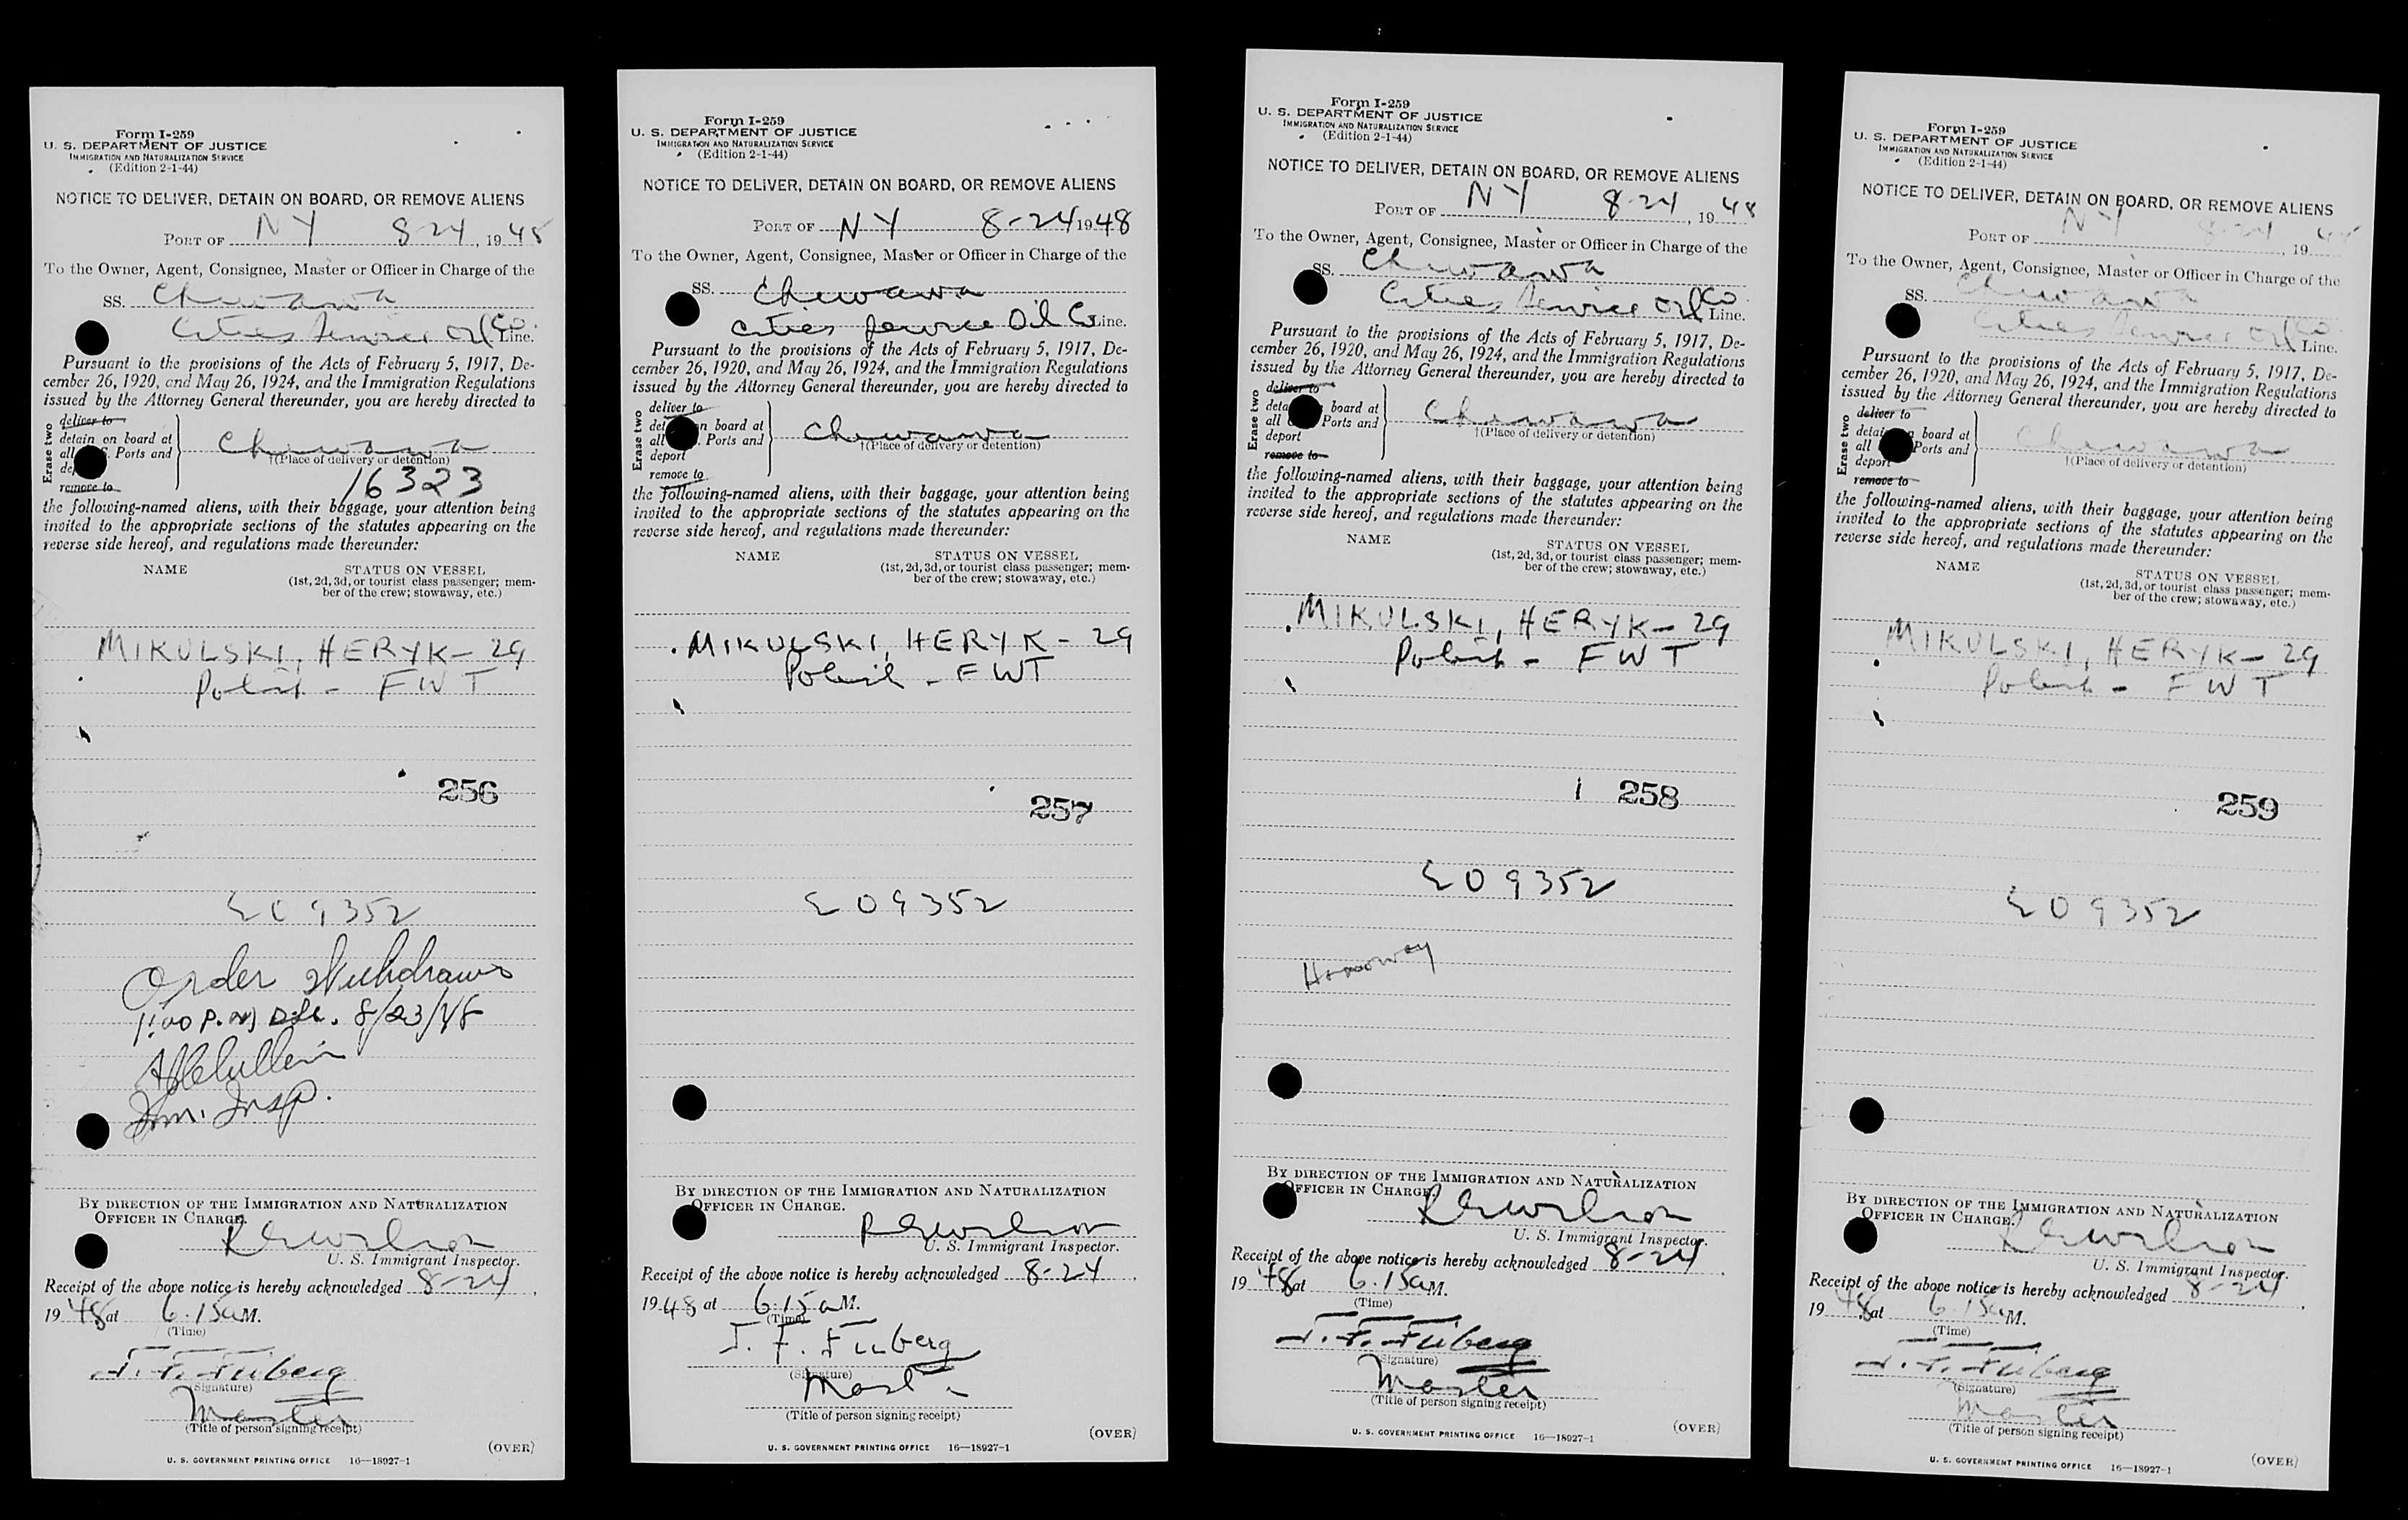 Form I-259
U. S. DEPARTMENT OF JUSTICE
IMMIGRATION AND NATURALIZATION SERVICE
(Edition 2-1-44)
NOTICE TO DELIVER, DETAIN ON BOARD, OR REMOVE ALIENS
PORT OF NY 8-24, 1948
To the Owner, Agent, Consignee, Master or Officer in Charge of the
SS. Chiwawa
Cities Service Oil Co. Line.
Pursuant to the provisions of the Acts of February 5, 1917, De-
cember 26, 1920, and May 26, 1924, and the Immigration Regulations
issued by the Attorney General thereunder, you are hereby directed to
Erase two
deliver to
detain on board at
all S. Ports and
remove to
Chiwawa
†(Place of delivery or detention)
16323
the following-named aliens, with their baggage, your attention being
invited to the appropriate sections of the statutes appearing on the
reverse side hereof, and regulations made thereunder:
NAME STATUS ON VESSEL
(1st, 2d, 3d, or tourist class passenger; mem-
ber of the crew; stowaway, etc.)
MIKULSKI, HERYK - 29
Polish - FWT
256
E09352
Order Withdrawn
1:00 P.M. 8/23/48
Im. Insp.
BY DIRECTION OF THE IMMIGRATION AND NATURALIZATION
OFFICER IN CHARGE.
REWilson
U. S. Immigrant Inspector.
Receipt of the above notice is hereby acknowledged 8-24,
1948 at 6.15 a M.
(Time)
J. F. Fuberg
(Signature)
Master
(Title of person signing receipt)
(OVER)
U. S. GOVERNMENT PRINTING OFFICE 16—18927-1
Form I-259
U. S. DEPARTMENT OF JUSTICE
IMMIGRATION AND NATURALIZATION SERVICE
(Edition 2-1-44)
NOTICE TO DELIVER, DETAIN ON BOARD, OR REMOVE ALIENS
PORT OF NY 8-24 1948
To the Owner, Agent, Consignee, Master or Officer in Charge of the
SS. Chiwawa
Cities Service Oil Co Line.
Pursuant to the provisions of the Acts of February 5, 1917, De-
cember 26, 1920, and May 26, 1924, and the Immigration Regulations
issued by the Attorney General thereunder, you are hereby directed to
Erase two
deliver to
board at
all Ports and
deport
remove to
Chiwawa
†(Place of delivery or detention)
the following-named aliens, with their baggage, your attention being
invited to the appropriate sections of the statutes appearing on the
reverse side hereof, and regulations made thereunder:
NAME STATUS ON VESSEL
(1st, 2d, 3d, or tourist class passenger; mem-
ber of the crew; stowaway, etc.)
MIKULSKI, HERYK - 29
Polish - FWT
257
E09352
BY DIRECTION OF THE IMMIGRATION AND NATURALIZATION
OFFICER IN CHARGE.
REWilson
U. S. Immigrant Inspector.
Receipt of the above notice is hereby acknowledged 8-24,
1948 at 6.15 a M.
(Time)
J. F. Fuberg
(Signature)
Master
(Title of person signing receipt)
(OVER)
U. S. GOVERNMENT PRINTING OFFICE 16—18927-1
Form I-259
U. S. DEPARTMENT OF JUSTICE
IMMIGRATION AND NATURALIZATION SERVICE
(Edition 2-1-44)
NOTICE TO DELIVER, DETAIN ON BOARD, OR REMOVE ALIENS
PORT OF NY 8-24, 1948
To the Owner, Agent, Consignee, Master or Officer in Charge of the
SS. Chiwawa
Cities Service Oil Co. Line.
Pursuant to the provisions of the Acts of February 5, 1917, De-
cember 26, 1920, and May 26, 1924, and the Immigration Regulations
issued by the Attorney General thereunder, you are hereby directed to
Erase two
deliver to
board at
all Ports and
deport
remove to
Chiwawa
†(Place of delivery or detention)
the following-named aliens, with their baggage, your attention being
invited to the appropriate sections of the statutes appearing on the
reverse side hereof, and regulations made thereunder:
NAME STATUS ON VESSEL
(1st, 2d, 3d, or tourist class passenger; mem-
ber of the crew; stowaway, etc.)
MIKULSKI, HERYK - 29
Polish - FWT
258
E09352
BY DIRECTION OF THE IMMIGRATION AND NATURALIZATION
OFFICER IN CHARGE.
REWilson
U. S. Immigrant Inspector.
Receipt of the above notice is hereby acknowledged 8-24,
1948 at 6.15 a M.
(Time)
J. F. Fuberg
(Signature)
Master
(Title of person signing receipt)
(OVER)
U. S. GOVERNMENT PRINTING OFFICE 16—18927-1
Form I-259
U. S. DEPARTMENT OF JUSTICE
IMMIGRATION AND NATURALIZATION SERVICE
(Edition 2-1-44)
NOTICE TO DELIVER, DETAIN ON BOARD, OR REMOVE ALIENS
PORT OF NY 8-24, 1948
To the Owner, Agent, Consignee, Master or Officer in Charge of the
SS. Chiwawa
Cities Service Oil Co. Line.
Pursuant to the provisions of the Acts of February 5, 1917, De-
cember 26, 1920, and May 26, 1924, and the Immigration Regulations
issued by the Attorney General thereunder, you are hereby directed to
Erase two
deliver to
board at
all Ports and
deport
remove to
Chiwawa
†(Place of delivery or detention)
the following-named aliens, with their baggage, your attention being
invited to the appropriate sections of the statutes appearing on the
reverse side hereof, and regulations made thereunder:
NAME STATUS ON VESSEL
(1st, 2d, 3d, or tourist class passenger; mem-
ber of the crew; stowaway, etc.)
MIKULSKI, HERYK - 29
Polish - FWT
259
E09352
BY DIRECTION OF THE IMMIGRATION AND NATURALIZATION
OFFICER IN CHARGE.
REWilson
U. S. Immigrant Inspector.
Receipt of the above notice is hereby acknowledged 8-24,
1948 at 6.15 a M.
(Time)
J. F. Fuberg
(Signature)
Master
(Title of person signing receipt)
(OVER)
U. S. GOVERNMENT PRINTING OFFICE 16—18927-1